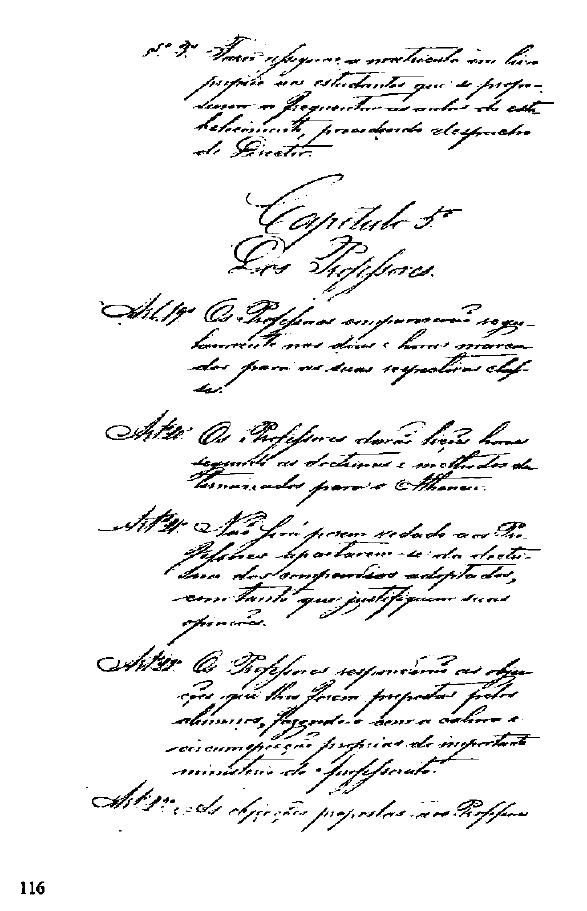 §º 3º Fará a matricula em livro
proprio aos estudantes que se propo-
serem a frequentar as aulas do esta
belecimento, precedendo despacho
do Director.
Capitulo 5º
Dos Professores.
Art. 19º Os Professores comparecerão regu-
larmente nos dias e horas marca
dos para as suas respectivas clas-
ses.
Art. 20º Os Professores darão lições
segundo as doctrinas e methodos de
terminados para o Atheneu.
Art. 21º Não será porem vedado aos Pro
fessores apartarem-se da doctri-
na dos compendios adoptados,
com tanto que justifiquem suas
opiniões.
Art. 22º Os Professores responderão as obje-
ções que lhes forem propostas pelos
alumnos, fazendo-o com a calma e
circumspecção proprias do importante
ministerio do professorato.
Art. As objecções propostas aos Professores
116